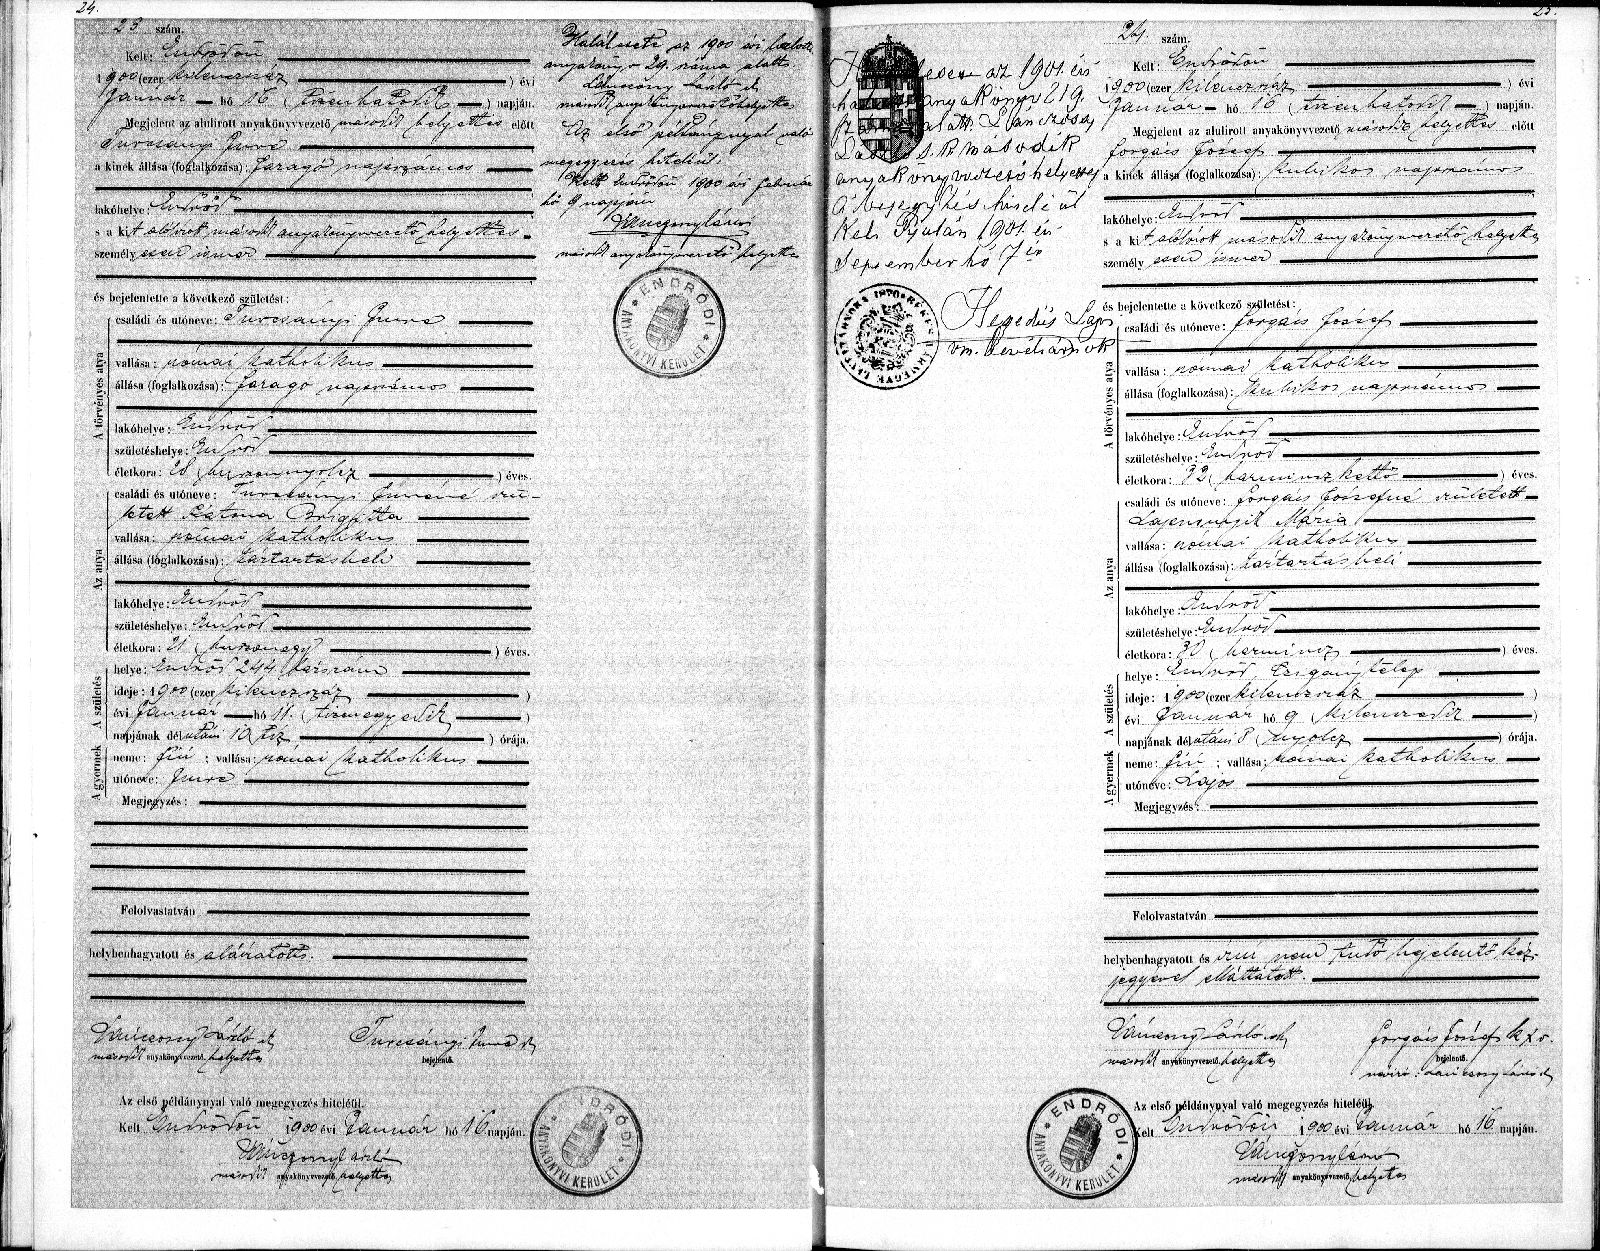 24.
23 szám.
Kelt: Endrődön
1900 (ezer kilenczszáz ) évi
Január hó 16 (tizenhatodik ) napján.
Megjelent az alulirott anyakönyvvezető második helyettes előtt
Turcsányi Imre
a kinek állása (foglalkozása): faragó napszámos
lakóhelye: Endrőd
s a kit alólírott második anyakönyvvezető helyettes
személyesen ismer
és bejelentette a következő születést:
A törvényes atya
családi és utóneve: Turcsányi Imre
vallása: római katholikus
állása (foglalkozása): faragó napszámos
lakóhelye: Endrőd
születéshelye: Endrőd
életkora: 28 (huszonnyolcz ) éves.
Az anya
családi és utóneve: Turcsányi Imréné szü-
letett Katona Brigitta
vallása: római katholikus
állása (foglalkozása): háztartásbeli
lakóhelye: Endrőd
születéshelye: Endrőd
életkora: 21 (huszonegy ) éves.
A születés
helye: Endrőd 244 házszám
ideje: 1900 (ezer kilenczszáz )
évi Január hó 11. (tizenegyedik )
napjának délutáni 10 (tíz ) órája.
A gyermek
neme: fiú ; vallása: római katholikus
utóneve: Imre
Megjegyzés:
Felolvastatván
helybenhagyatott és aláíratott.
László
anyakönyvvezető helyettes
Turcsányi Imre
bejelentő.
Az első példánynyal való megegyezés hiteléül.
Kelt Endrődön 1900 évi Január hó 16 napján.
anyakönyvvezető helyettes
ENDRŐDI
ANYAKÖNYVI KERÜLET
Halálesete az 1900 évi halotti
anyakönyv 29. száma alatt.
László
második anyakönyvvezető helyettes
Az első példánynyal való
megegyezés hiteléül.
Kelt Endrődön 1900 évi február
hó 9 napján
második anyakönyvvezető helyettes
ENDRŐDI
ANYAKÖNYVI KERÜLET
az 1901. évi
anyakönyv 219.
alatt.
László s. k. második
anyakönyvvezető helyettes
A megegyezés hiteléül
Kelt Gyulán 1901. évi
September hó 7 én
Hegedűs Lajos
vm. levéltárnok
25.
24. szám.
Kelt: Endrődön
1900 (ezer kilenczszáz ) évi
Január hó 16 (tizenhatodik ) napján.
Megjelent az alulirott anyakönyvvezető második helyettes előtt
Forgács József
a kinek állása (foglalkozása): kubikos napszámos
lakóhelye: Endrőd
s a kit alólírott második anyakönyvvezető helyettes
személyesen ismer
és bejelentette a következő születést:
A törvényes atya
családi és utóneve: Forgács József
vallása: római katholikus
állása (foglalkozása): kubikos napszámos
lakóhelye: Endrőd
születéshelye: Endrőd
életkora: 32 (harminczkettő ) éves.
Az anya
családi és utóneve: Forgács Józsefné született
Mária
vallása: római katholikus
állása (foglalkozása): háztartásbeli
lakóhelye: Endrőd
születéshelye: Endrőd
életkora: 30 (harmincz ) éves.
A születés
helye: Endrőd Czigánytelep
ideje: 1900 (ezer kilenczszáz )
évi Január hó 9 (kilenczedik )
napjának délutáni 8 (nyolcz ) órája.
A gyermek
neme: fiú ; vallása: római katholikus
utóneve: Lajos
Megjegyzés:
Felolvastatván
helybenhagyatott és írni nem tudó bejelentő kéz-
jegyével elláttatott.
László
anyakönyvvezető helyettes
Forgács József
bejelentő.
Az első példánynyal való megegyezés hiteléül.
Kelt Endrődön 1900 évi Január hó 16 napján.
anyakönyvvezető helyettes
ENDRŐDI
ANYAKÖNYVI KERÜLET